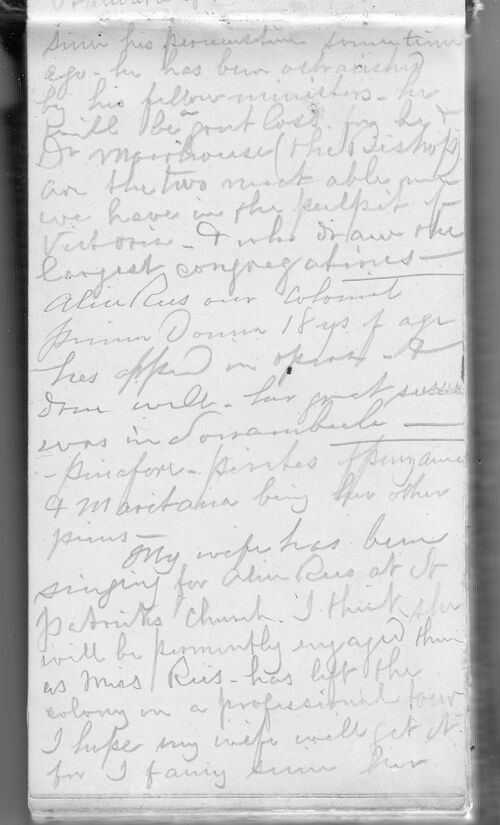 since his persecution sometime
ago - he has been ostracised
by his fellow ministers - he
will be a great loss. for he &
Dr Moorhouse (the Bishop)
are the two most able men
we have in the pulpit of
Victoria - & who draw the
largest congregations -
Alice Rees our Colonial
Prima Donna 18 ys of age
has appd in opera - &
done well - her great success
was in Sonnambula -
- pinafore - pirates of penzance
& Maritana being her other
pieces -
My wife has been
singing for Alice Rees at St
Patricks Church. I think she
will be permently engaged then
as Miss Rees - has left the
colony on a professional tour
I hope my wife will get it
for I fancy since her